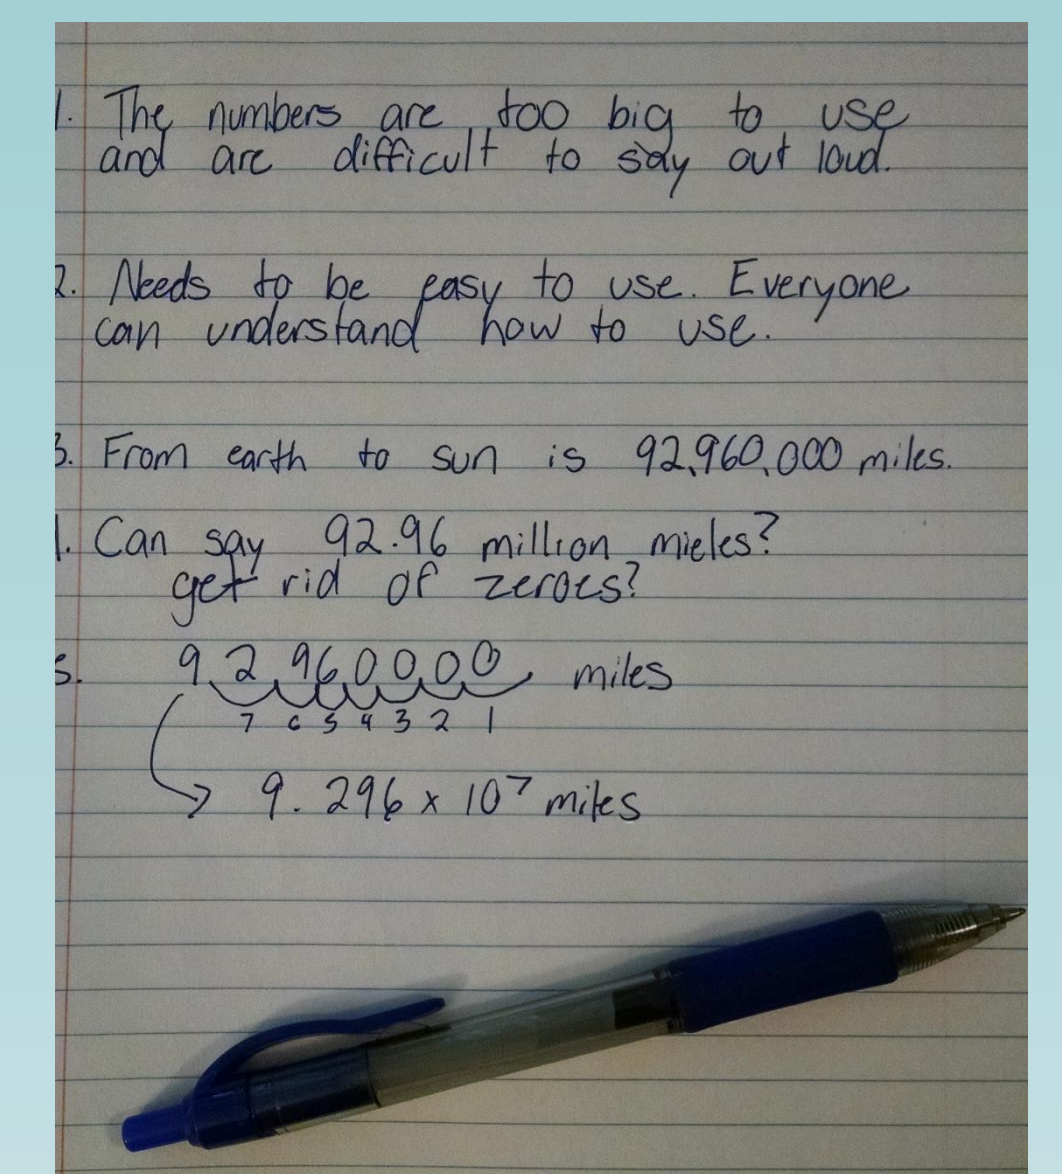 1. The numbers are too big to use
and are difficult to say out loud.
2. Needs to be easy to use. Everyone
can understand how to use.
3. From earth to sun is 92,960,000 miles.
Can say 92.96 million mieles?
get rid of zeroes?
92960000 miles
7 6 5 4 3 2 1
9.296 x 10⁷ miles